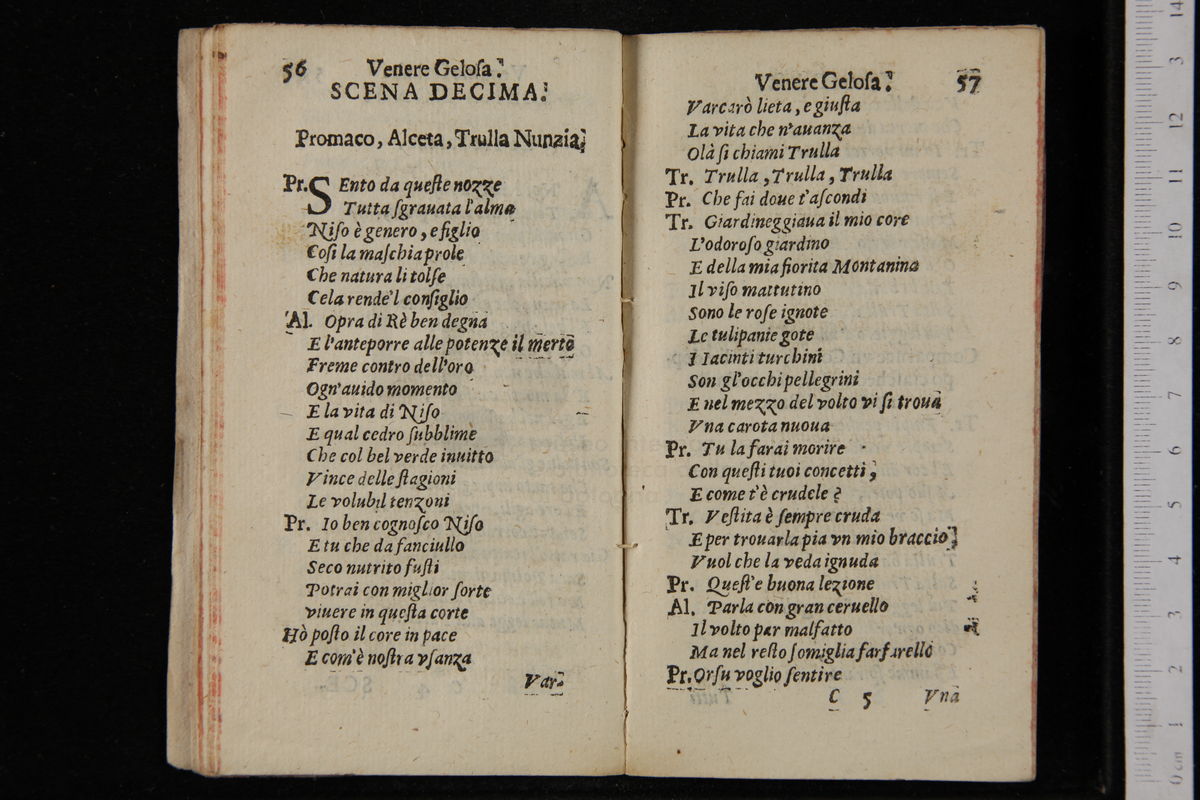 56 Venere Gelosa.
SCENA DECIMA.
Promaco, Alceta, Trulla Nunzia.
Pr. SEnto da queste nozze
Tutta sgrauata l'alma
Niso è genero, e figlio
Così la maschia prole
Che natura li tolse
Cela rende'l consiglio
Al. Opra di Rè ben degna
E l'anteporre alle potenze il merto
Freme contro dell'oro
Ogn'auido momento
E la vita di Niso
E qual cedro subblime
Che col bel verde inuitto
Vince delle stagioni
Le volubil tenzoni
Pr. Io ben cognosco Niso
E tu che da fanciullo
Seco nutrito fusti
Potrai con miglior sorte
viuere in questa corte
Hò posto il core in pace
E com'è nostra vsanza
Var-
Venere Gelosa. 57
Varcarò lieta, e giusta
La vita che n'auanza
Olà si chiami Trulla
Tr. Trulla, Trulla, Trulla
Pr. Che fai doue t'ascondi
Tr. Giardineggiaua il mio core
L'odoroso giardino
E della mia fiorita Montanina
Il viso mattutino
Sono le rose ignote
Le tulipanie gote
I Iacinti turchini
Son gl'occhi pellegrini
E nel mezzo del volto vi si troua
Vna carota nuoua
Pr. Tu la farai morire
Con questi tuoi concetti,
E come t'è crudele?
Tr. Vestita è sempre cruda
E per trouarla pia vn mio braccio
Vuol che la veda ignuda
Pr. Quest'e buona lezione
Al. Parla con gran ceruello
Il volto par malfatto
Ma nel resto somiglia farfarello
Pr. Orsu voglio sentire
C 5 Vna
0 cm 1 2 3 4 5 6 7 8 9 10 11 12 13 14